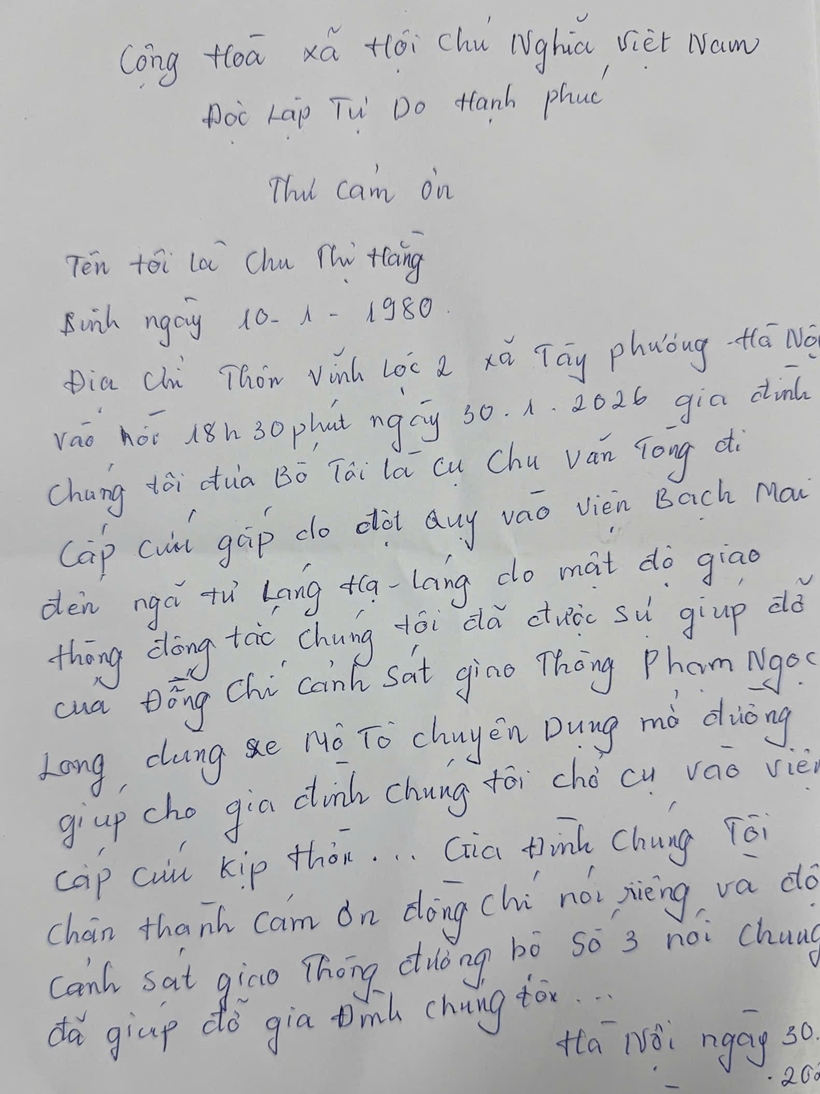 Cộng Hoà xã Hội Chủ Nghĩa Việt Nam
Độc Lập Tự Do Hạnh phúc
Thư cảm ơn
Tên tôi là Chu Thị Hằng
Sinh ngày 10-1-1980.
Địa chỉ Thôn Vĩnh Lộc 2 xã Tây phương-Hà Nộ
vào hồi 18h30phút ngày 30.1.2026 gia đình
Chúng tôi đưa Bố Tôi là cụ Chu Văn Tòng đi
Cấp cứu gấp do đột quỵ vào viện Bạch Mai
đến ngã tư Láng Hạ-Láng do mật độ giao
thông đông tắc chúng tôi đã được sự giúp đỡ
của Đồng Chí cảnh sát giao Thông Phạm Ngọc
Long dùng xe Mô Tô chuyên Dụng mở đường
giúp cho gia đình chúng tôi chở cụ vào viện
cấp cứu kịp thời... Gia Đình Chúng Tôi
chân thành cảm ơn đồng chí nói riêng và độ
cảnh sát giao Thông đường bộ số 3 nói chung
đã giúp đỡ gia Đình chúng tôi...
Hà Nội ngày 30.
.202